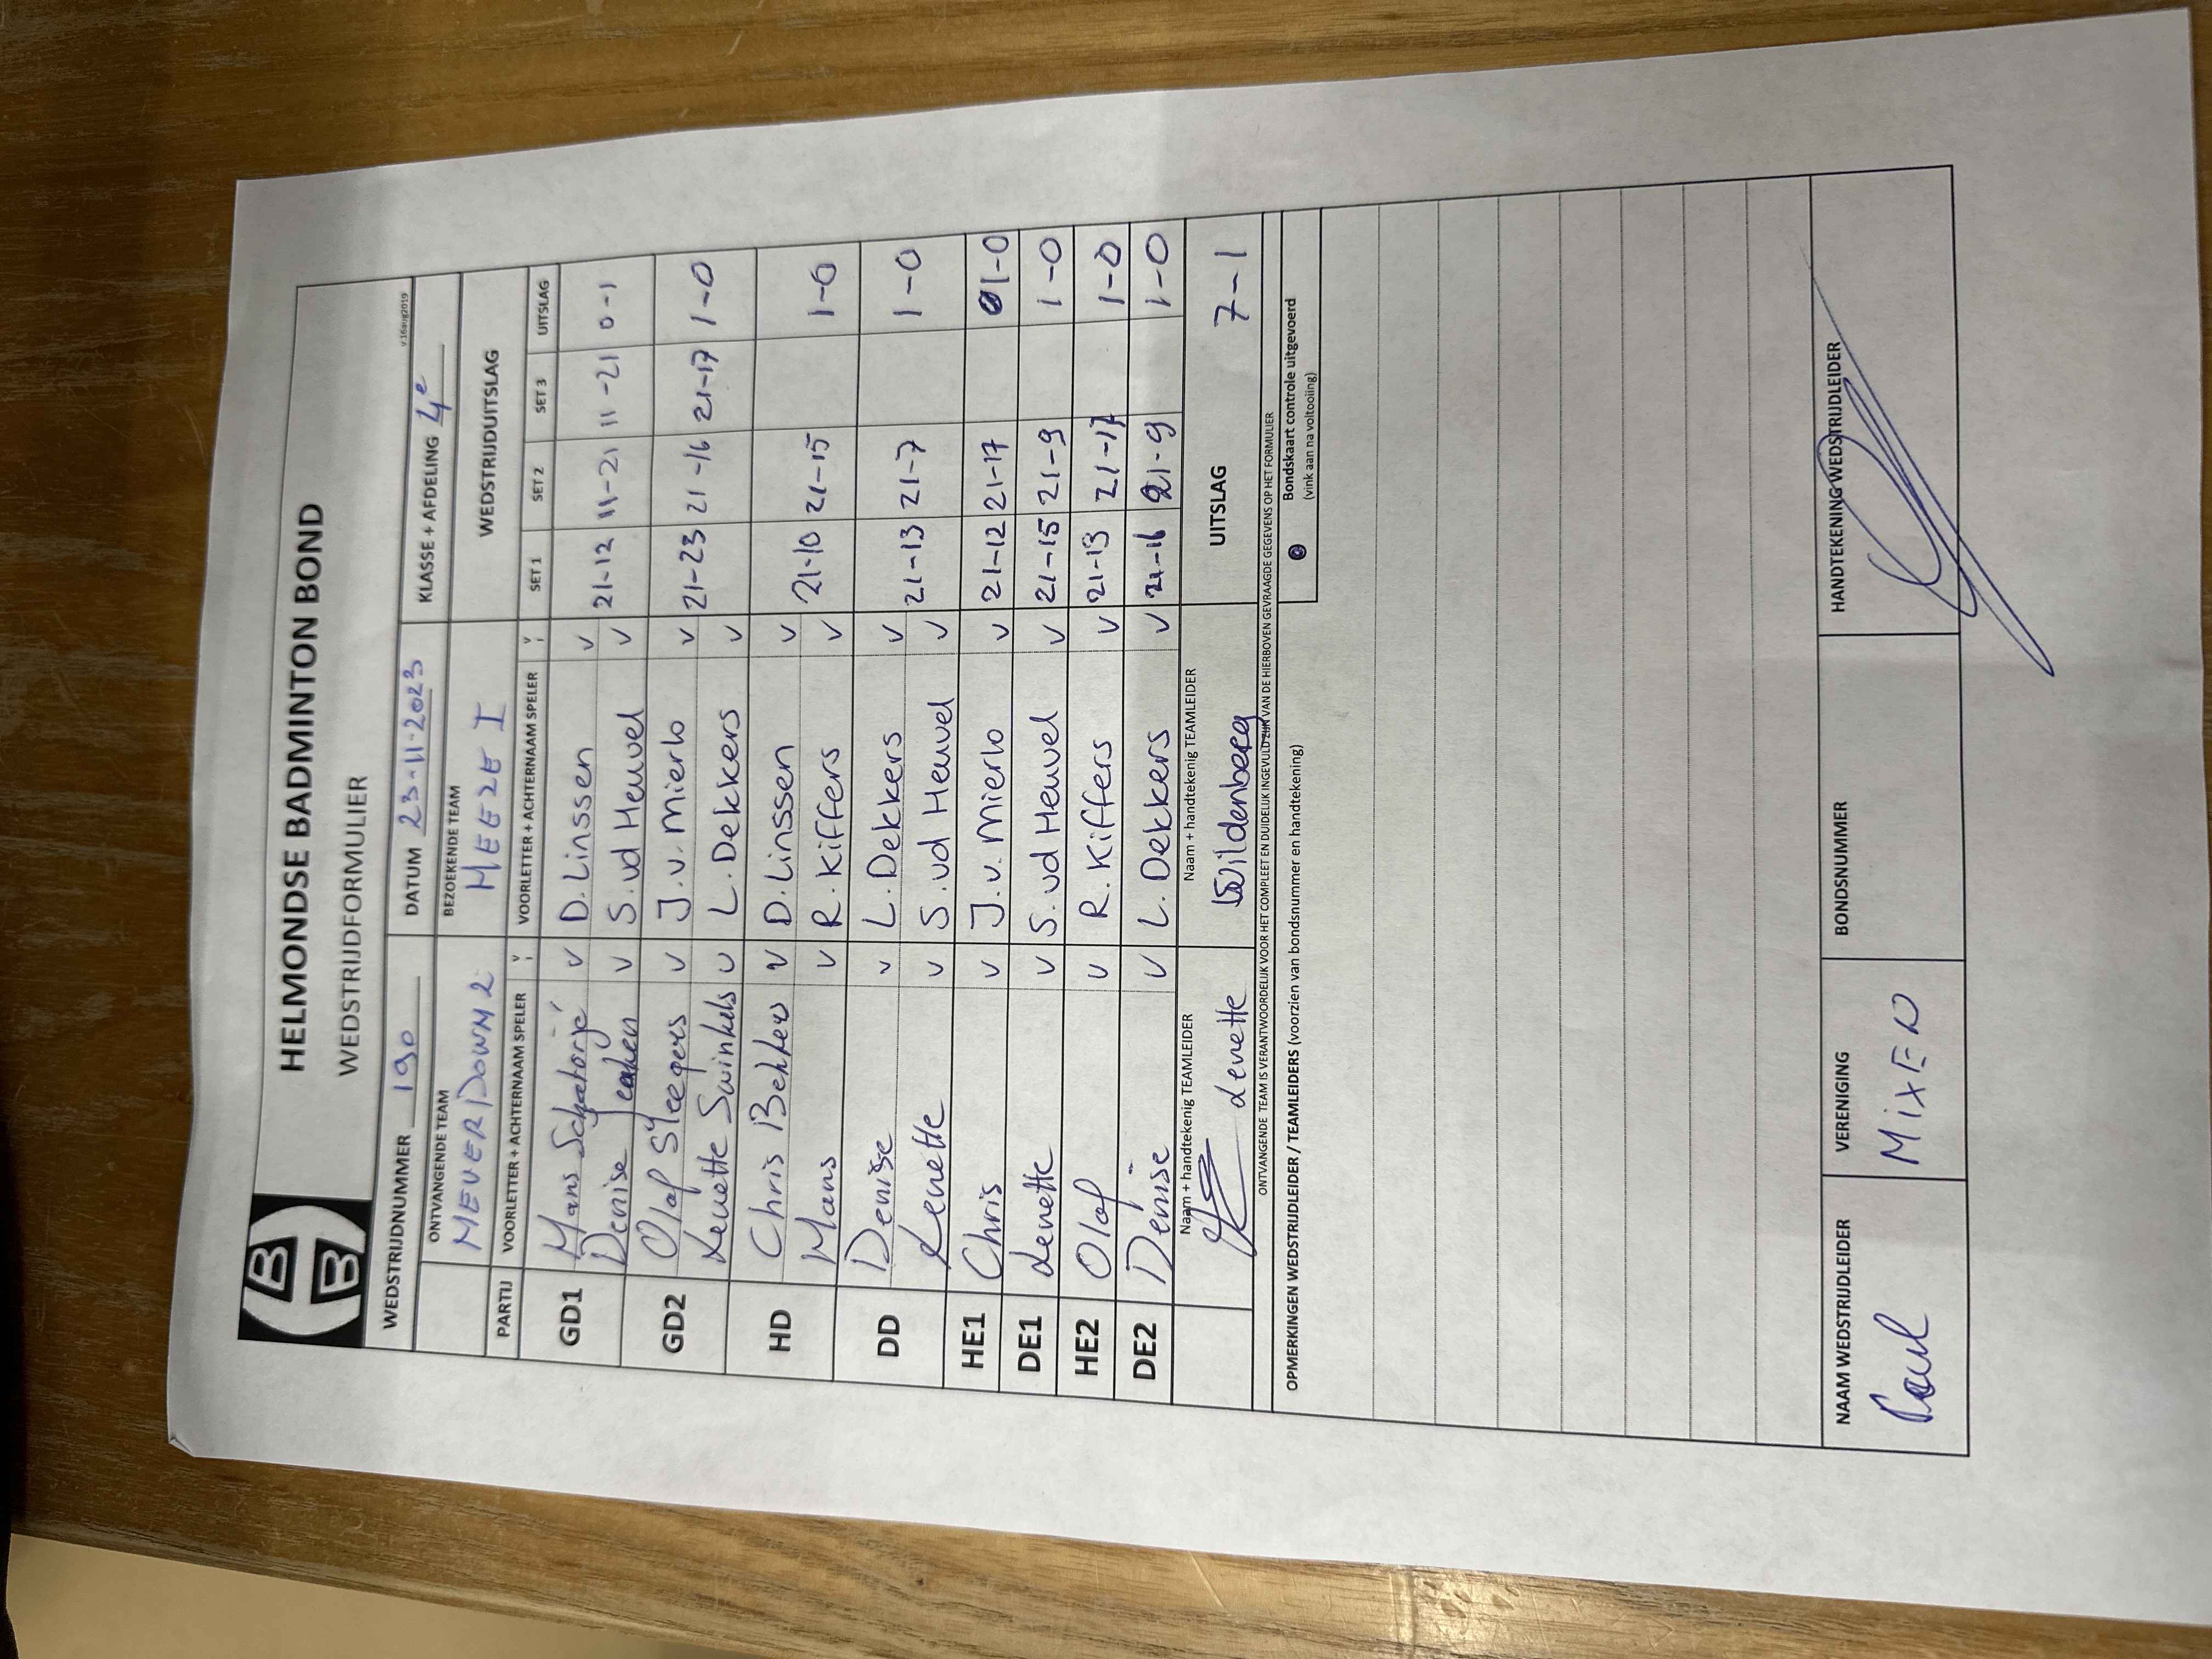 HELMONDSE BADMINTON BOND
WEDSTRIJDFORMULIER
v.16aug2019
WEDSTRIJDNUMMER 190 DATUM 23-11-2023 KLASSE + AFDELING 4e
ONTVANGENDE TEAM BEZOEKENDE TEAM WEDSTRIJDUITSLAG
NEVERDOWN 2 HEEZE I
PARTIJ VOORLETTER + ACHTERNAAM SPELER V VOORLETTER + ACHTERNAAM SPELER V SET 1 SET 2 SET 3 UITSLAG
GD1 Mans Schatorjé v D. Linssen v 21-12 11-21 11-21 0-1
Denise v S. vd Heuvel v
GD2 Olaf Sleegers v J. v. Mierlo v 21-23 21-16 21-17 1-0
Lenette Swinkels v L. Dekkers v
HD Chris v D. Linssen v 21-10 21-15 1-0
Mans v R. Kiffers v
DD Denise v L. Dekkers v 21-13 21-7 1-0
Lenette v S. vd Heuvel v
HE1 Chris v J. v. Mierlo v 21-12 21-17 1-0
DE1 Lenette v S. vd Heuvel v 21-15 21-9 1-0
HE2 Olaf v R. Kiffers v 21-13 21-17 1-0
DE2 Denise v L. Dekkers v 21-16 21-9 1-0
Naam + handtekenig TEAMLEIDER Naam + handtekenig TEAMLEIDER UITSLAG 7-1
Lenette Wildenberg
ONTVANGENDE TEAM IS VERANTWOORDELIJK VOOR HET COMPLEET EN DUIDELIJK INGEVULD ZIJN VAN DE HIERBOVEN GEVRAAGDE GEGEVENS OP HET FORMULIER
OPMERKINGEN WEDSTRIJDLEIDER / TEAMLEIDERS (voorzien van bondsnummer en handtekening)
Bondskaart controle uitgevoerd
(vink aan na voltooiing)
NAAM WEDSTRIJDLEIDER VERENIGING BONDSNUMMER HANDTEKENING WEDSTRIJDLEIDER
Paul MIXED